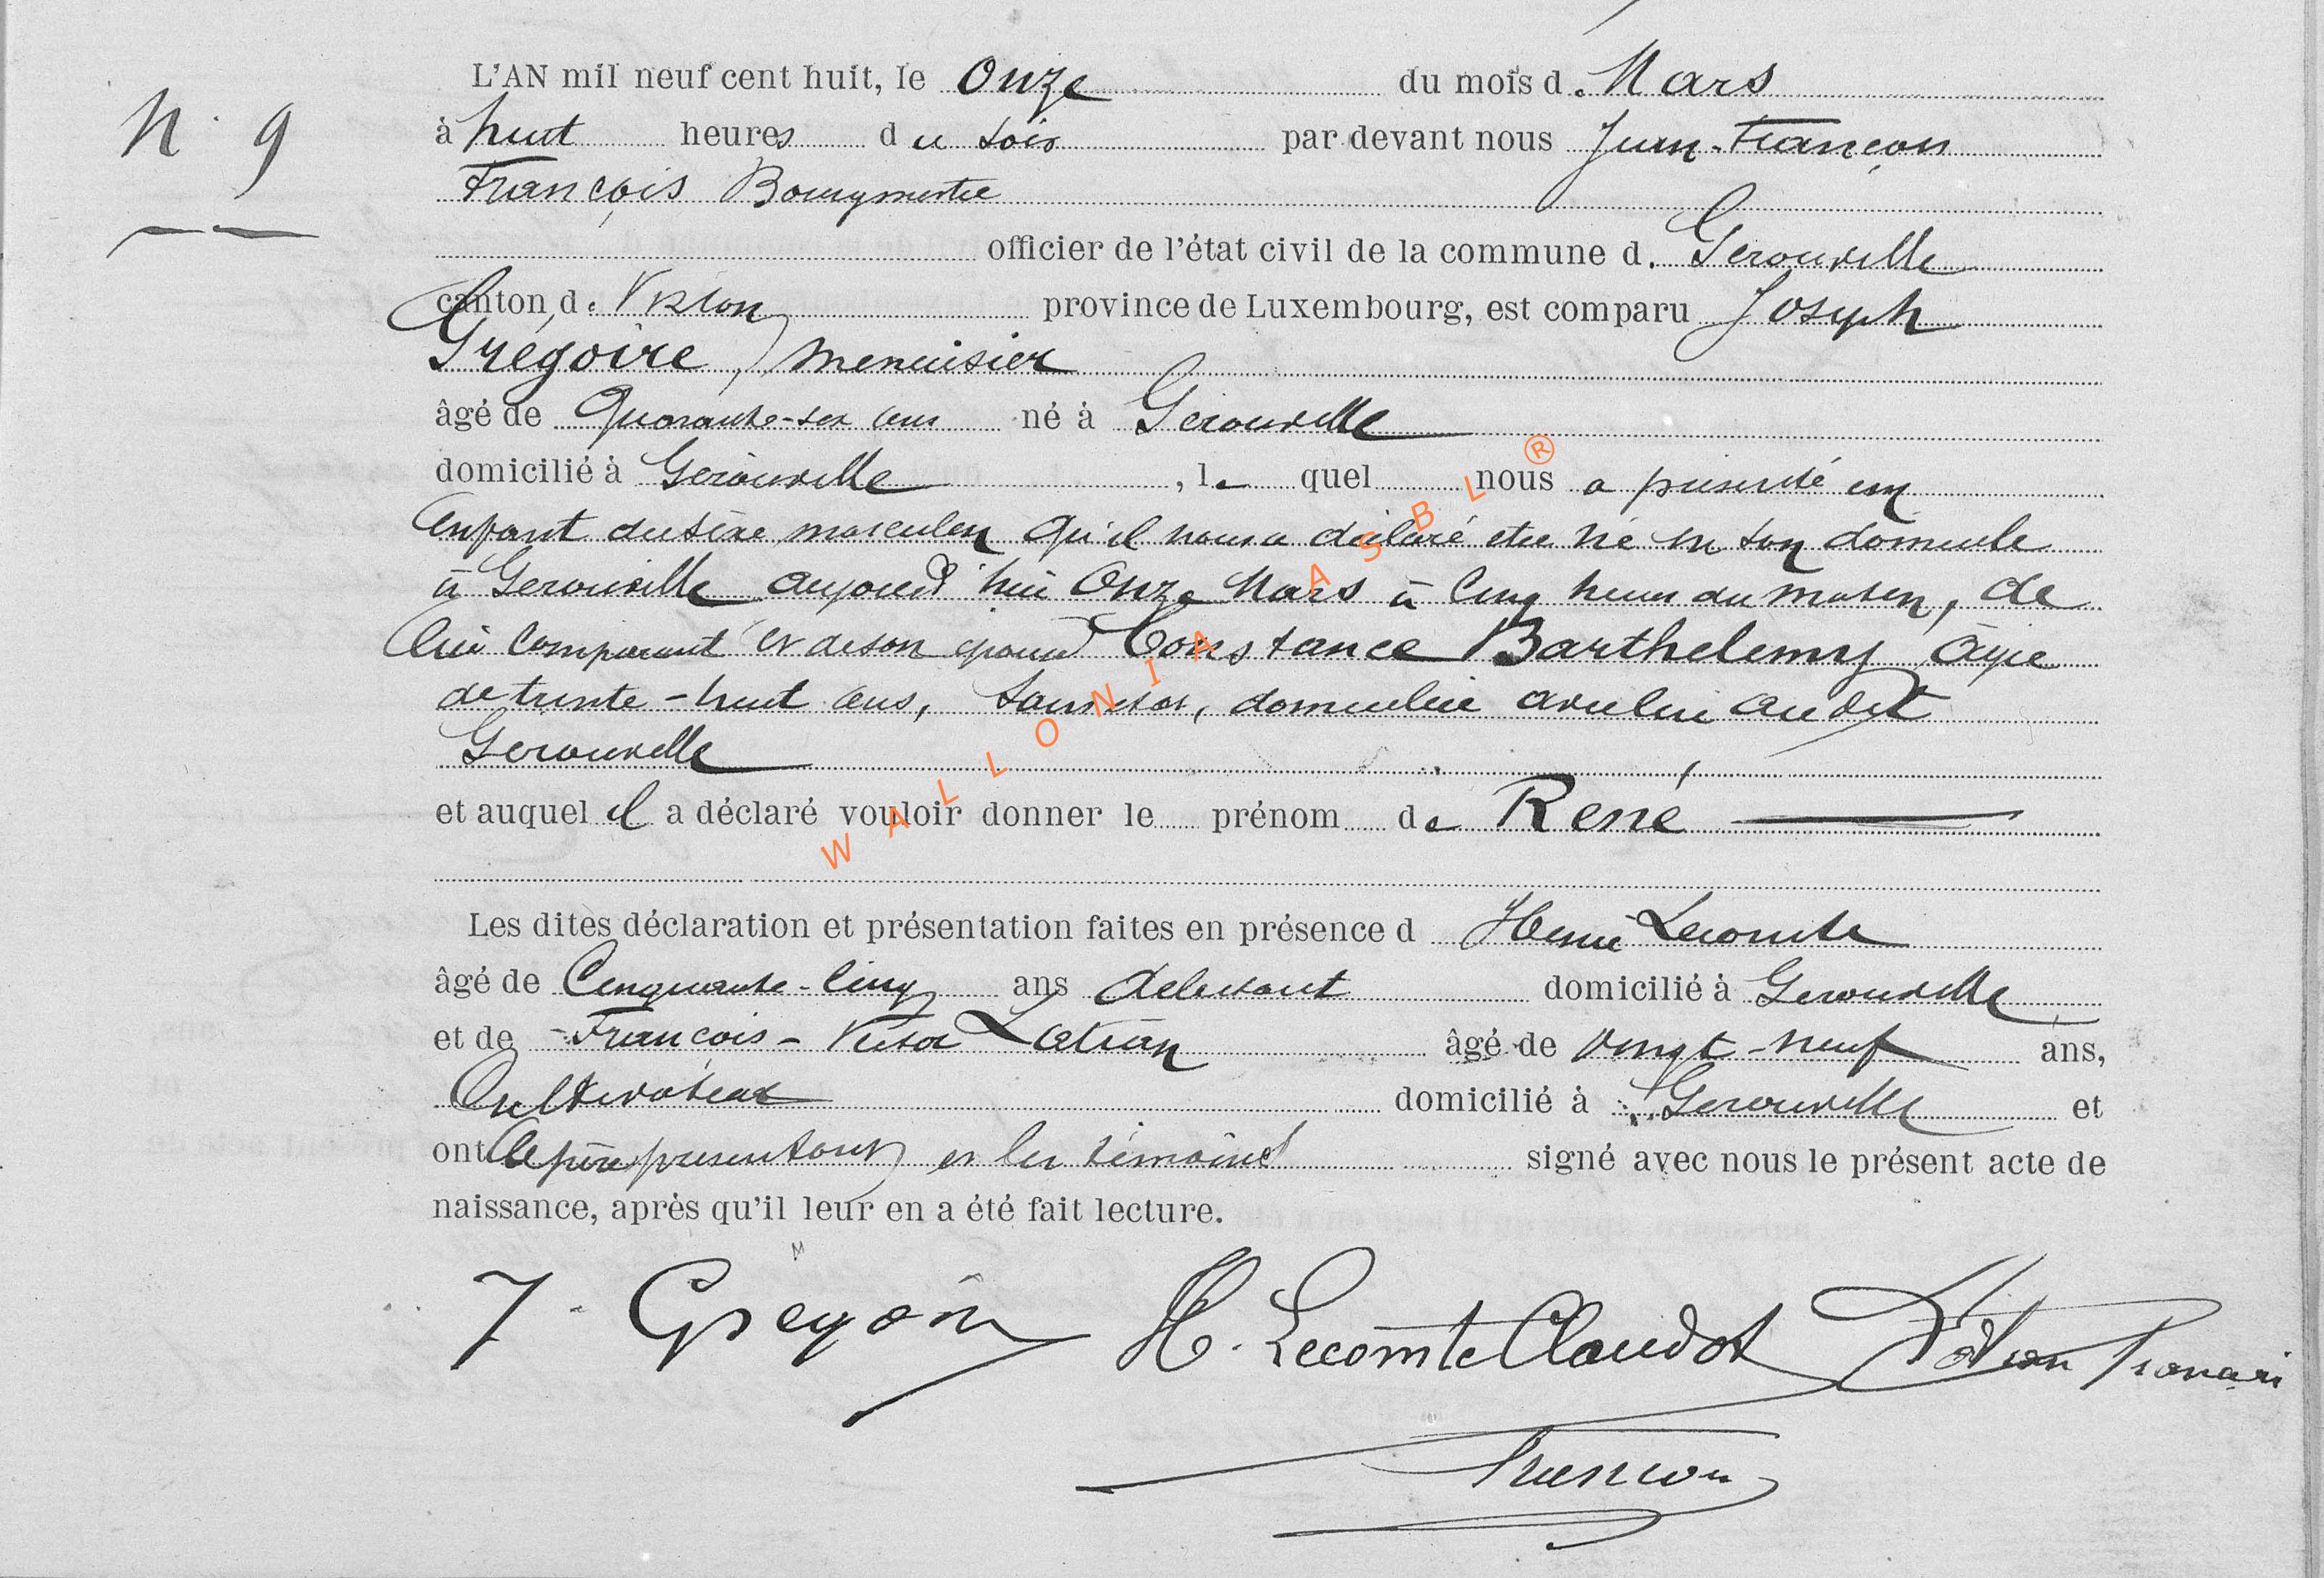 N° 9
L'AN mil neuf cent huit, le Onze du mois de Mars
à huit heures du soir par devant nous Jean-François
François Bourgmestre
officier de l'état civil de la commune de Gerouville
canton de Virton province de Luxembourg, est comparu Joseph
Grégoire, menuisier
âgé de Quarante-six ans né à Gerouville
domicilié à Gerouville, lequel nous a présenté un
Enfant du sexe masculin qu'il nous a déclaré etre né en son domicile
à Gerouville aujourd'hui Onze Mars à Cinq heures du matin, de
lui Comparant et de son épouse Constance Barthelemy âgée
de trente-huit ans, domiciliée avec lui audit
Gerouville
et auquel il a déclaré vouloir donner le prénom de René
Les dites déclaration et présentation faites en présence d Henri Lecomte
âgé de Cinquante-Cinq ans débitant domicilié à Gerouville
et de François-Victor Latran âgé de vingt-neuf ans,
Cultivateur domicilié à Gerouville et
ont le père présentant et les témoins signé avec nous le présent acte de
naissance, après qu'il leur en a été fait lecture.
J. Gregoire H. Lecomte Claudot Latran François
WALLONIA ASBL ®